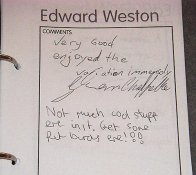 Edward Weston
COMMENTS
Very Good
enjoyed the
variation immensly
Not much cod stuff
ere innit. Get some
fut burds ere!!!